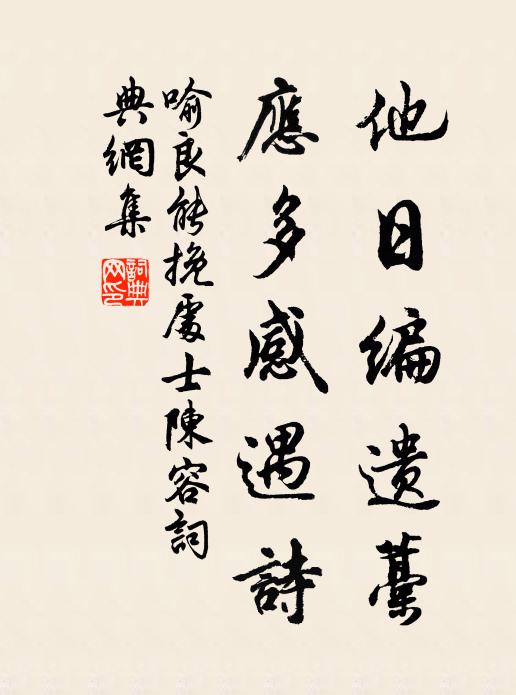 他日編遺藁
應多感遇詩
喻良能挽處士陳容詞
典網集
詞典
网印